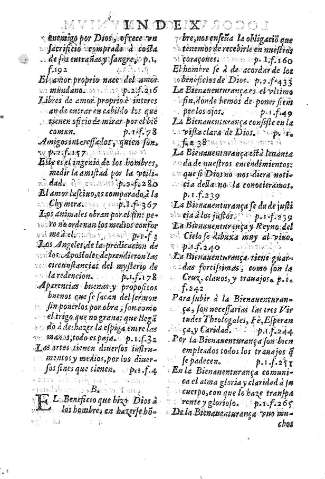 INDEX
enemigo por Dios, ofrece vn
sacrificio comprado à costa
de sus entrañas y sangre, p.1.
f.192
El amor proprio nace del amor
mundano. p.2.f.216
Libros de amor proprio è interes
an de entrar en cabildo los que
tienen oficio de mirar por el biē
comun. p.1.f.78
Amigos interessados, quien son.
p.2.f.157
Este es el ingenio de los hombres,
medir la amistad por la vtili-
dad. p.2.f.280
El amor lascivo, es comparado à la
Chymera. p.1.f.367
Los animales obran por el fin: pe-
ro no ordenan los medios confor
me à el. p.1.f.3
Los Angeles, de la predicacion de
los Apostoles deprendieron las
circunstancias del mysterio de
la redencion. p.1.f.178
Aparencias buenas y propositos
buenos que se sacan del sermon
sin ponerlos por obra, son como
el trigo que no grana: que llegā
do à deshazer la espiga entre las
manos, todo es paja. p.1.f.32
Las artes tienen diversos instru-
mentos y medios, por los diver-
sos fines que tienen. p.1.f.4
B.
EL Beneficio que hizo Dios à
los hombres, en hazerse hō-
bre, nos enseña la obligaciō que
tenemos de recebirle en nuestros
coraçones. p.1.f.160
El hombre se à de acordar de los
beneficios de Dios. p.1.f.433
La Bienaventurança es el vltimo
fin, donde hemos de poner siem
pre los ojos. p.1.f.49
La Bienaventurança consiste en la
vista clara de Dios. p.1.
f.238
La Bienaventurança està levanta
da de nuestros entendimientos:
que si Dios no nos diera noti-
cia della no la conocieramos.
p.1.f.239
La Bienaventurança se da de justi
cia à los justos. p.1.f.239
La Bienaventurança y Reyno del
Cielo se dibuxa muy al vivo.
p.1.f.240
La Bienaventurança tiene guar-
das fortissimas, como son la
Cruz, clavos, y trabajos. p.1.
f.242
Para subir à la Bienaventuran-
ça, son necessarias las tres Vir
tudes Theologales, Fè, Esperan
ça, y Caridad. p.1.f.244
Por la Bienaventurança son bien
empleados todos los trabajos q̄
se padecen. p.1.f.251
En la Bienaventurança comuni-
ca el alma gloria y claridad à su
cuerpo, con que lo haze transpa
rente y glorioso. p.1.f.265
De la Bienaventurança vno mu-
chos